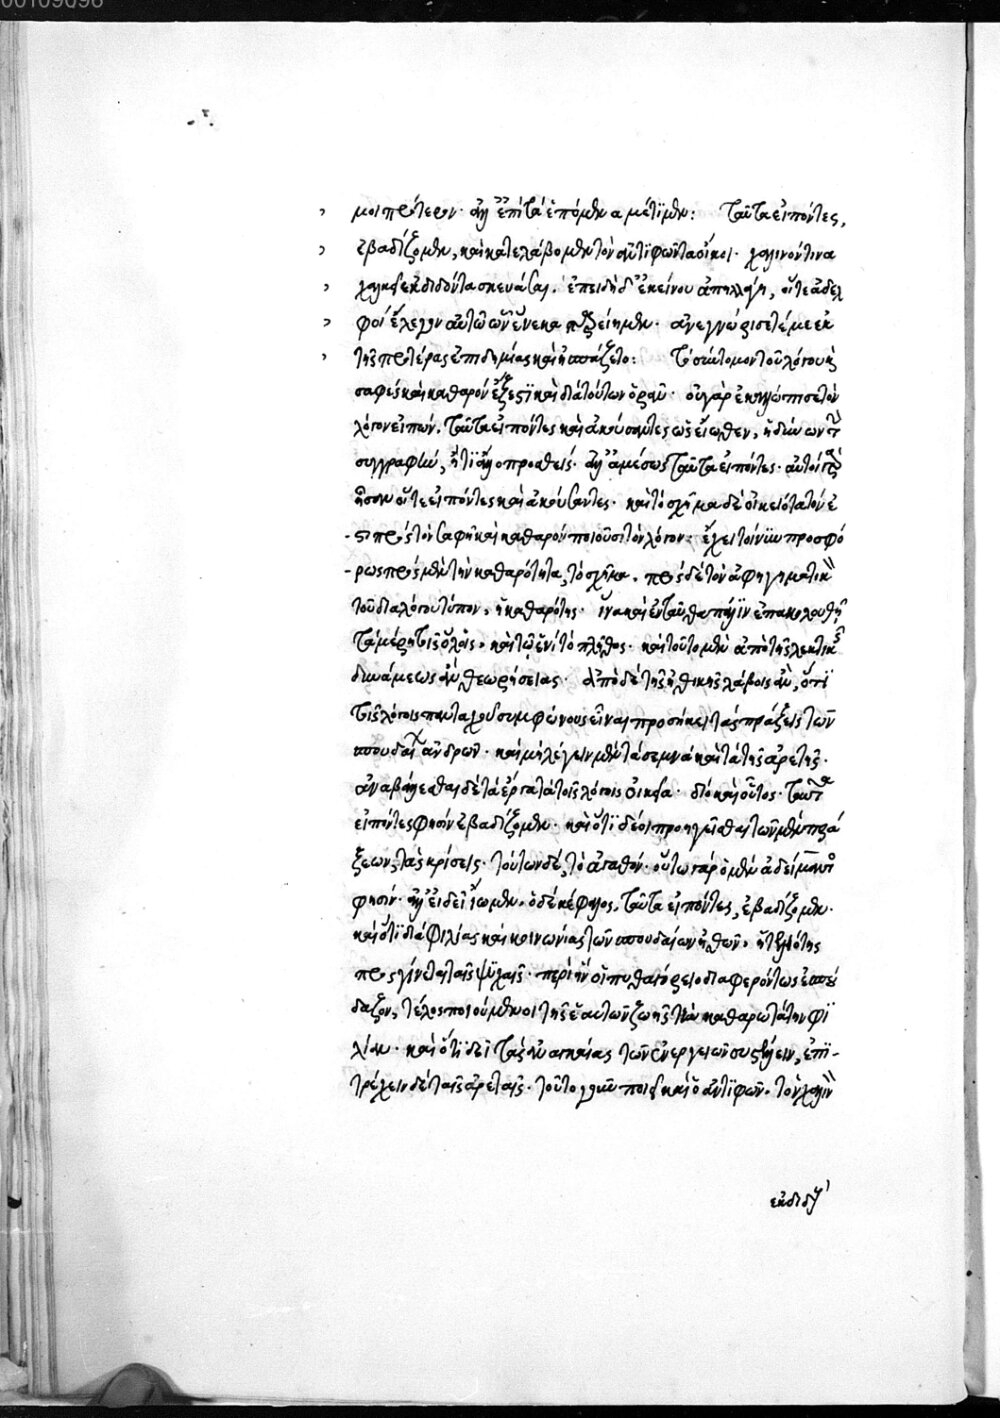 00109098
μοι πρότερον· ἀλλ' ἐπὶ τὰ ἑπόμενα μετίωμεν: Ταῦτα εἰπόντες,
ἐβαδίζομεν, καὶ κατελάβομεν τὸν ἀντιφῶντα οἴκοι· χαλινόν τινα
χαλκεῖ ἐκδιδόντα σκευάσαι. ἐπειδὴ δ' ἐκείνου ἀπηλλάγη, οἵ τε ἀδελ
φοὶ ἔλεγον αὐτῷ ὧν ἕνεκα παρείημεν· ἀνεγνώρισέ τέ με ἐκ
τῆς προτέρας ἐπιδημίας καὶ ἠσπάζετο: Τὸ σύντομον τοῦ λόγου καὶ
σαφὲς καὶ καθαρὸν ἔξεστι καὶ διὰ τούτων ὁρᾶν· οὐ γὰρ ἐκαλλώπισε τὸν
λόγον εἰπών. Ταῦτα εἰπόντες καὶ ἀκούσαντες ὡς εἴωθεν, ἡ δίων
συγγραφεύς, ἤ τι ἄλλο προσθείς· ἀλλ' ἀμέσως ταῦτα εἰπόντες· αὐτοὶ
ἦσαν οἵ τε εἰπόντες καὶ ἀκούσαντες· καὶ τὸ σχῆμα δὲ οἰκειότατόν ἐ
στι πρὸς τὸν σαφῆ καὶ καθαρὸν ποιοῦσι τὸν λόγον· ἔχει τοίνυν προσφό
ρως πρὸς μὲν τὴν καθαρότητα, τὸ σχῆμα. πρὸς δὲ τὸν ἀφηγηματικὸν
τοῦ διαλόγου τύπον, ἡ καθαρότης· ἵνα καὶ ἐνταῦθα πάλιν ἐπακολουθῇ
τὰ μέρη τοῖς ὅλοις, καὶ τῷ ἑνὶ τὸ πλῆθος· καὶ τοῦτο μὲν ἀπὸ τῆς λεκτικῆς
δυνάμεως ἂν θεωρήσειας· ἀπὸ δὲ τῆς ἠθικῆς λάβοις ἂν, ὅτι
τοῖς λόγοις πανταχοῦ συμφώνους εἶναι προσήκει τὰς πράξεις τῶν
σπουδαίων ἀνδρῶν· καὶ μὴ λέγειν μὲν τὰ σεμνὰ καὶ τὰ τῆς ἀρετῆς·
ἀναβάλλεσθαι δὲ τὰ ἔργα τὰ τοῖς λόγοις οἰκεῖα· διὸ καὶ οὗτος· Ταῦτα
εἰπόντες φησὶν ἐβαδίζομεν· καὶ ὅτι δέοι προηγεῖσθαι τῶν μὲν πρά
ξεων, τὰς κρίσεις· τούτων δὲ, τὸ ἀγαθόν· οὕτω γὰρ ὁ μὲν ἀδείμαντος
φησίν· ἀλλ' εἰ δεῖ ἴωμεν. ὁ δὲ κέφαλος, Ταῦτα εἰπόντες, ἐβαδίζομεν·
καὶ ὅτι διὰ φιλίας καὶ κοινωνίας τῶν σπουδαίων ἠθῶν, ἡ τελειότης
πως γίνεται ταῖς ψυχαῖς· περὶ ἣν οἱ πυθαγόρειοι διαφερόντως ἐσπού
δαζον, τέλος ποιούμενοι τῆς ἑαυτῶν ζωῆς τὴν καθαρωτάτην φι
λίαν· καὶ ὅτι δεῖ τὰς ἀναγκαίας τῶν ἐνεργειῶν συστέλλειν, ἐπι-
τρέχειν δὲ ταῖς ἀρεταῖς· τοῦτο γοῦν ποιεῖ καὶ ὁ ἀντιφῶν· τὸν χαλινὸν
ἐκδιδοὺ